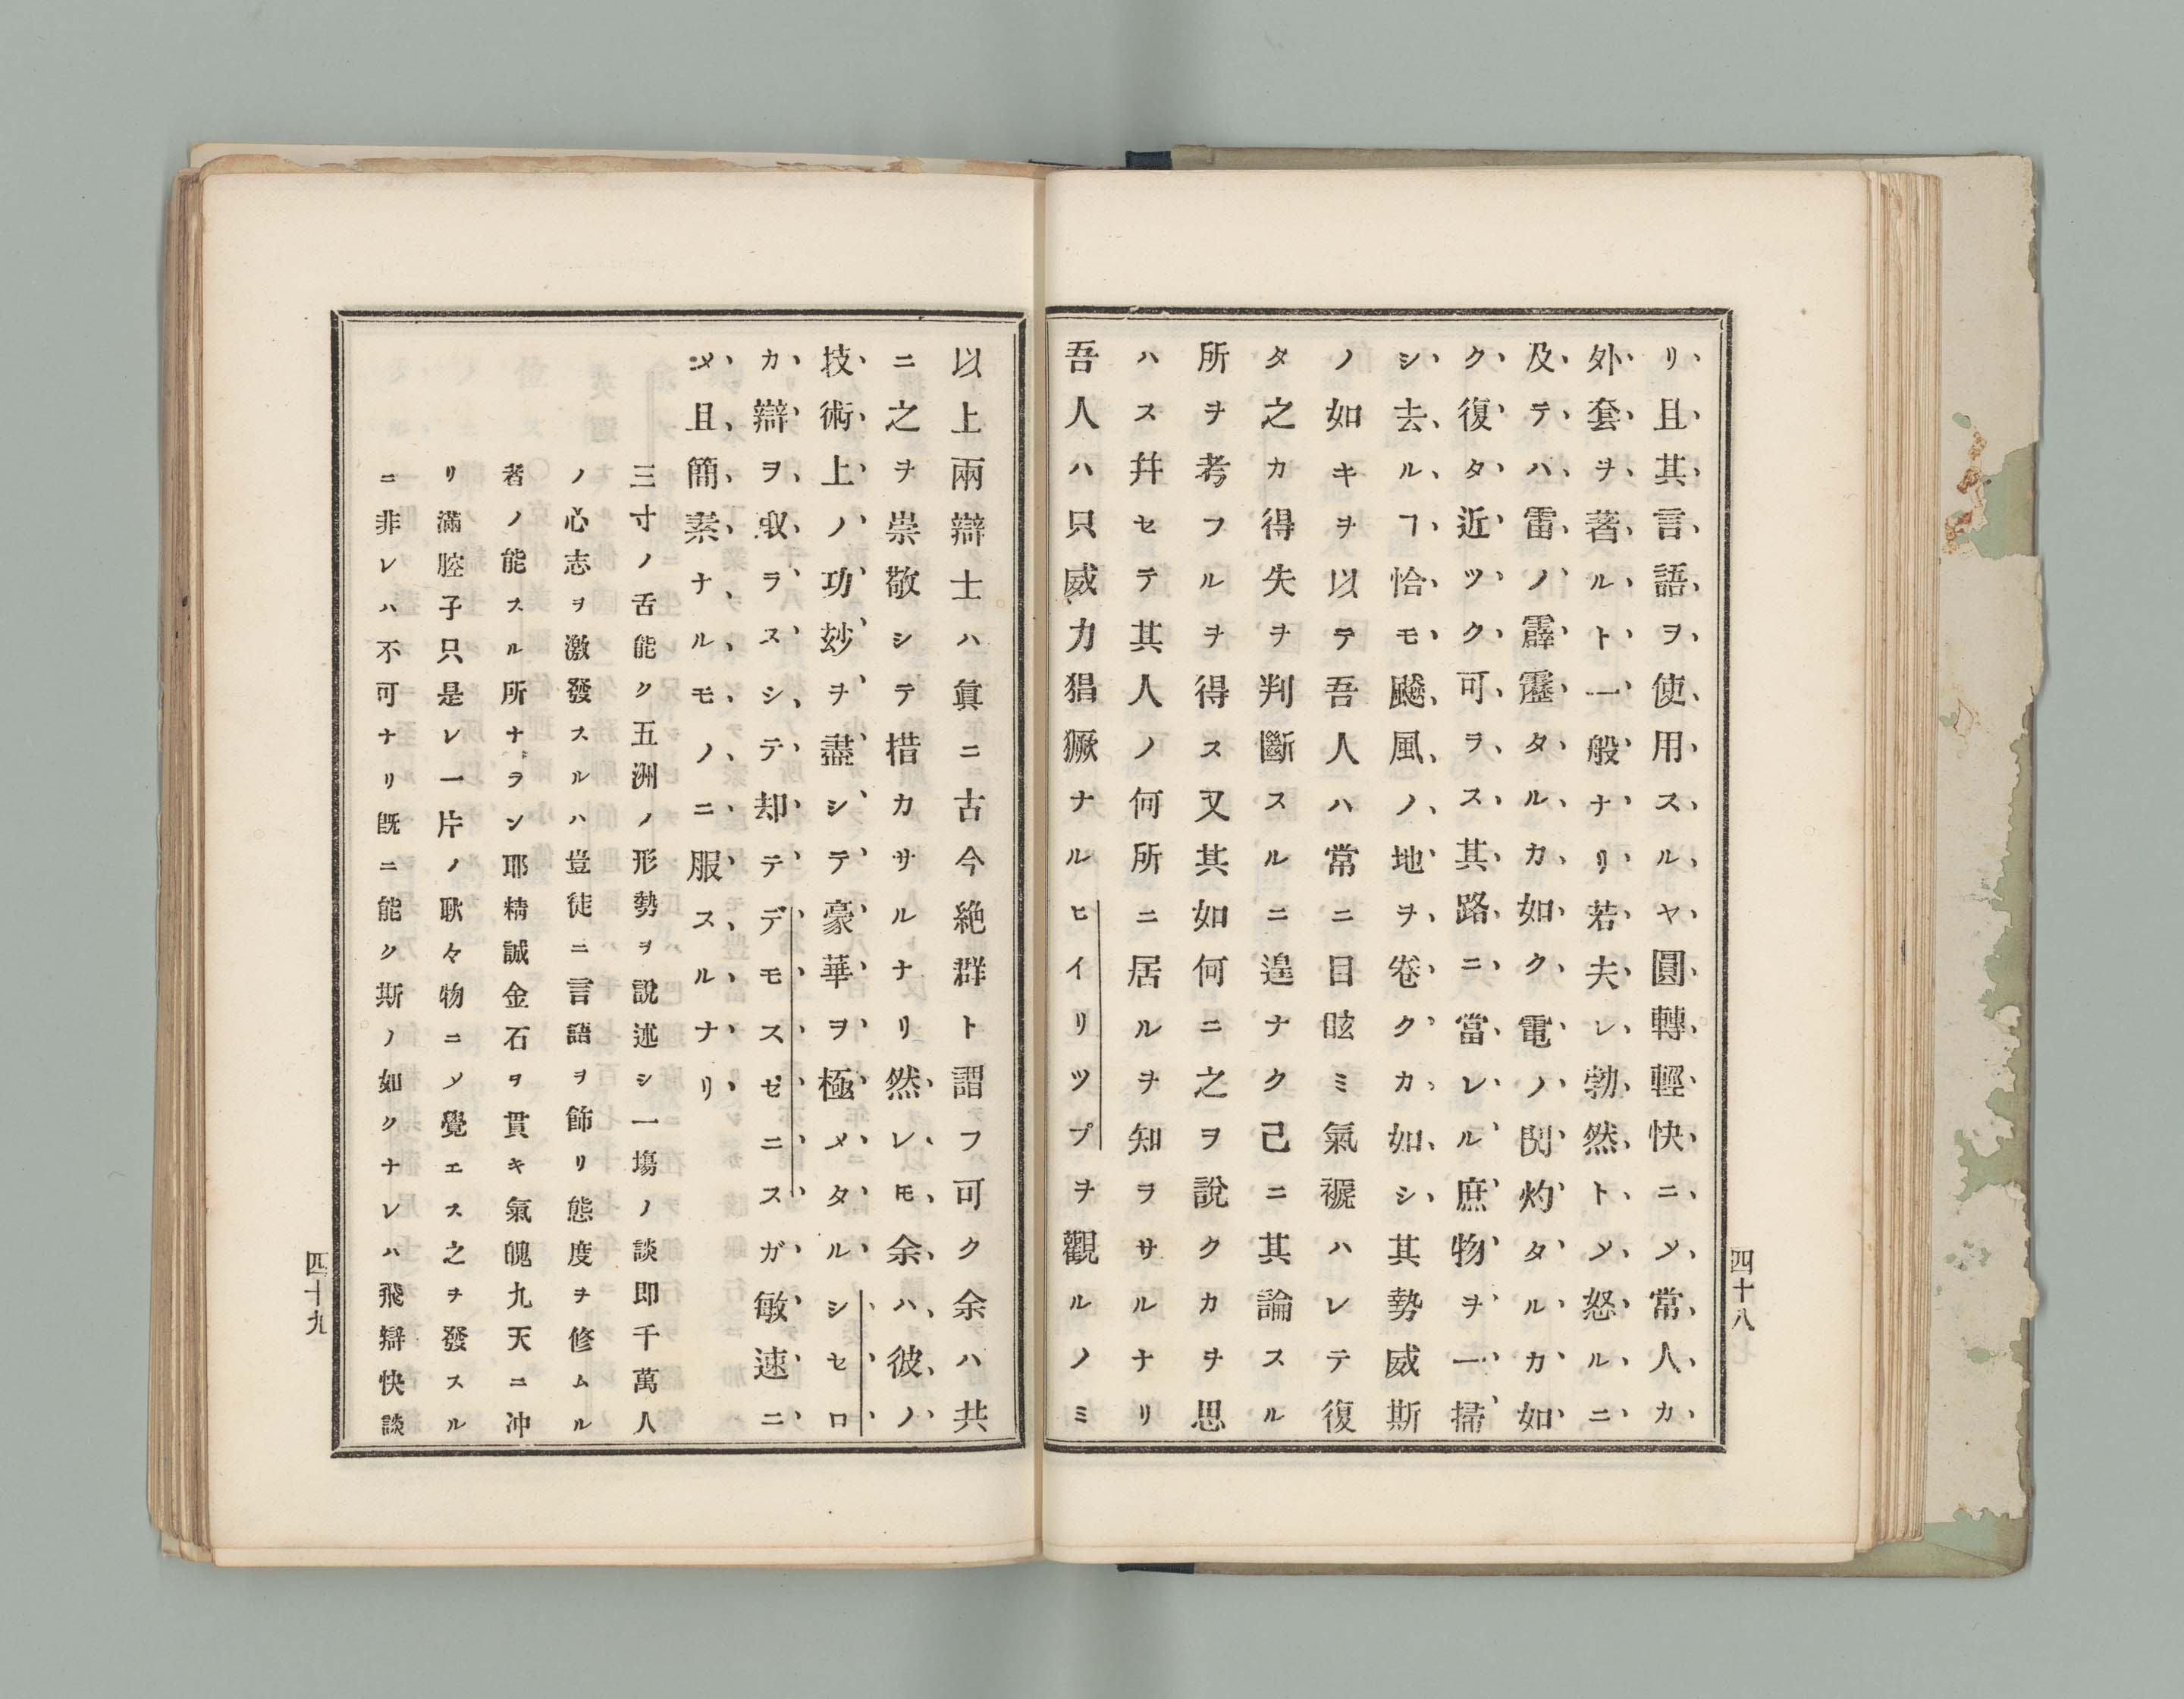 リ且其言語ヲ使用スルヤ圓轉輕快ニメ常人カ
外套ヲ著ルト一般ナリ若夫レ勃然トメ怒ルニ
及テハ雷ノ霹靂タルカ如ク電ノ閃灼タルカ如
ク復タ近ツク可ラス其路ニ當レル庶物ヲ一掃
シ去ルヿ恰モ颷風ノ地ヲ卷クカ如シ其勢威斯
ノ如キヲ以テ吾人ハ常ニ目眩ミ氣褫ハレテ復
タ之カ得失ヲ判斷スルニ遑ナク己ニ其論スル
所ヲ考フルヲ得ス又其如何ニ之ヲ說クカヲ思
ハス幷セテ其人ノ何所ニ居ルヲ知ヲサルナリ
吾人ハ只威力猖獗ナルヒイリツプヲ觀ルノミ
四十八
以上兩辯士ハ眞ニ古今絶群ト謂フ可ク余ハ共
ニ之ヲ崇敬シテ措カサルナリ然レ𪜈余ハ彼ノ
技術上ノ功玅ヲ盡シテ豪華ヲ極メタルシセロ
カ辯ヲ取ラスシテ却テデモスゼニスガ敏速ニ
メ且簡素ナルモノニ服スルナリ
三寸ノ舌能ク五洲ノ形勢ヲ說述シ一塲ノ談即千萬人
ノ心志ヲ激發スルハ豈徒ニ言語ヲ飾リ態度ヲ修ムル
者ノ能スル所ナラン耶精誠金石ヲ貫キ氣魄九天ニ冲
リ滿腔子只是レ一片ノ耿々物ニメ覺エス之ヲ發スル
ニ非レハ不可ナリ既ニ能ク斯ノ如クナレハ飛辯快談
四十九